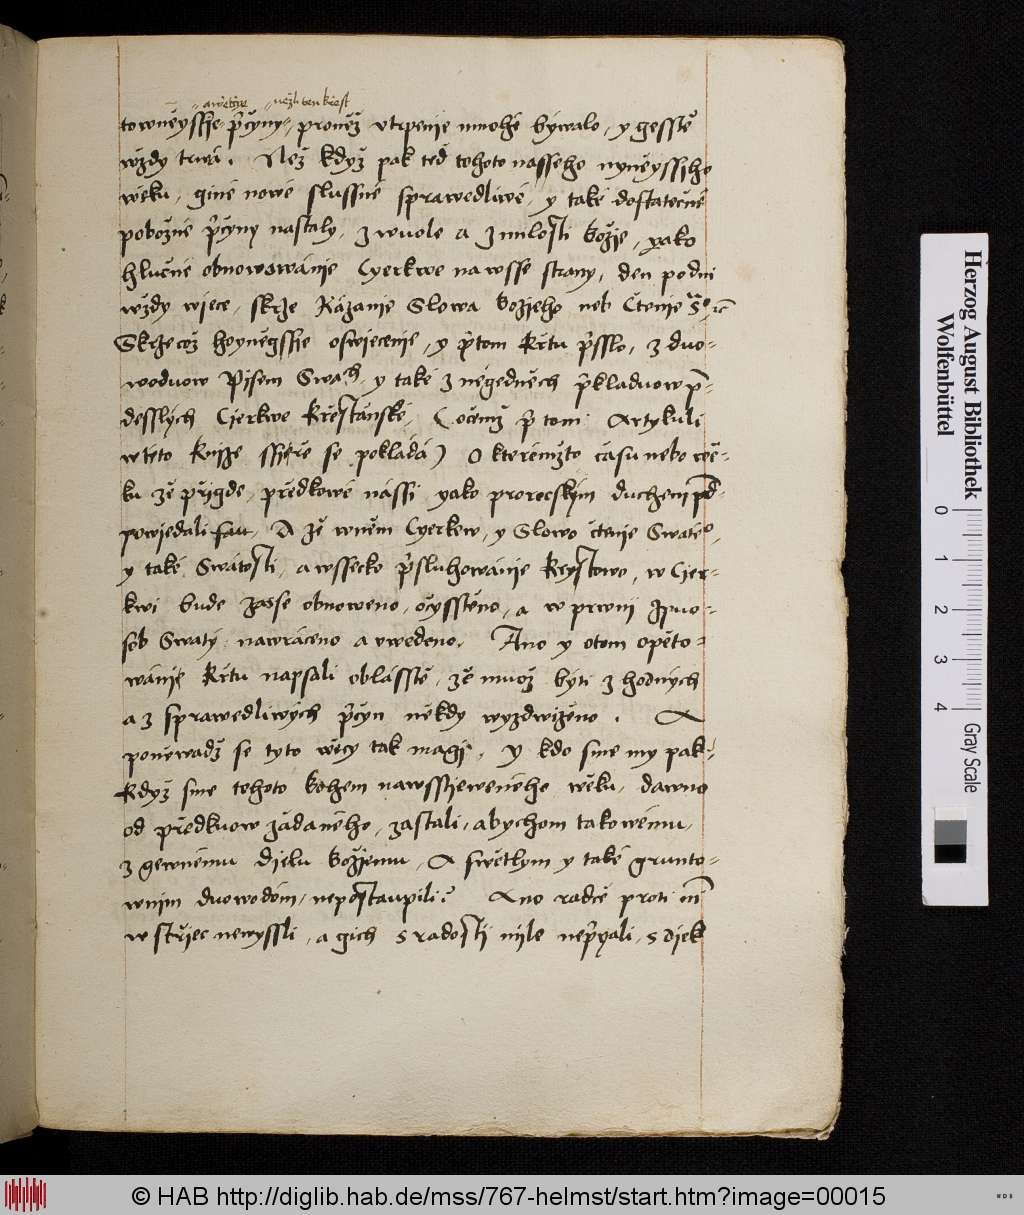 a wětčze nežli ten křest
townėyssie přčyny, pronėž vtrpenie mnohé býwalo, y gesstě
wždy trwá. Než když pak teď tohoto nasseho nynėyssiho
wėku, giné nowé slussné sprawedliwé, y také dostatečné
pobožné přčyny nastaly, z wuole a z milosti Božie, yako
hlučné obnowowánie Cyerkwe na wsse strany, den podni
wždy wiece, skrze Kázanie Slowa božieho neb Čtenie
Skrzecož hoynėgssie oswiecenie, y přtom Křtu přsslo, z duo-
woduow Pisem Swatch, y také z negednėch přkladuow př-
desslých Cierkwe Křestánské, (očemž přtom Artykuli
w teto Knize ssiřře se pokládá) O kterémžto času nebo wė-
ku že přigde, předkowé nássi yako prorockým duchem před-
powiedali sau, A že w nėm Cyerkew, y Slowo čtenie Swatéo,
y také Swátosti, a wssecko přsluhowánie Krystowo, w Cier-
kwi bude zase obnoweno, očysstėno, a w prwni zpuo-
sob Swatý nawráceno a vwedeno. Ano y otom opėto-
wánie Křtu napsali oblásstě, že muož býti z hodných
a z sprawedliwých přčyn nėkdy wyzdwiženo. A
ponėwadž se tyto wėcy tak magi, y kdo sme my pak,
Když sme tohoto Bohem nawsstiweného wėku, dawno
od předkuow žádaného, zastali, abychom takowému,
z gewnému dielu božiemu, A swėtlym y také grunto-
wnim duowodóm, nepostaupili? Ano radče proti nim
w střiec newyssli, a gich s radosti mile nepřyali, s diek
© HAB http://diglib.hab.de/mss/767-helmst/start.htm?image=00015
Herzog August Bibliothek
Wolfenbüttel
0 1 2 3 4
Gray Scale